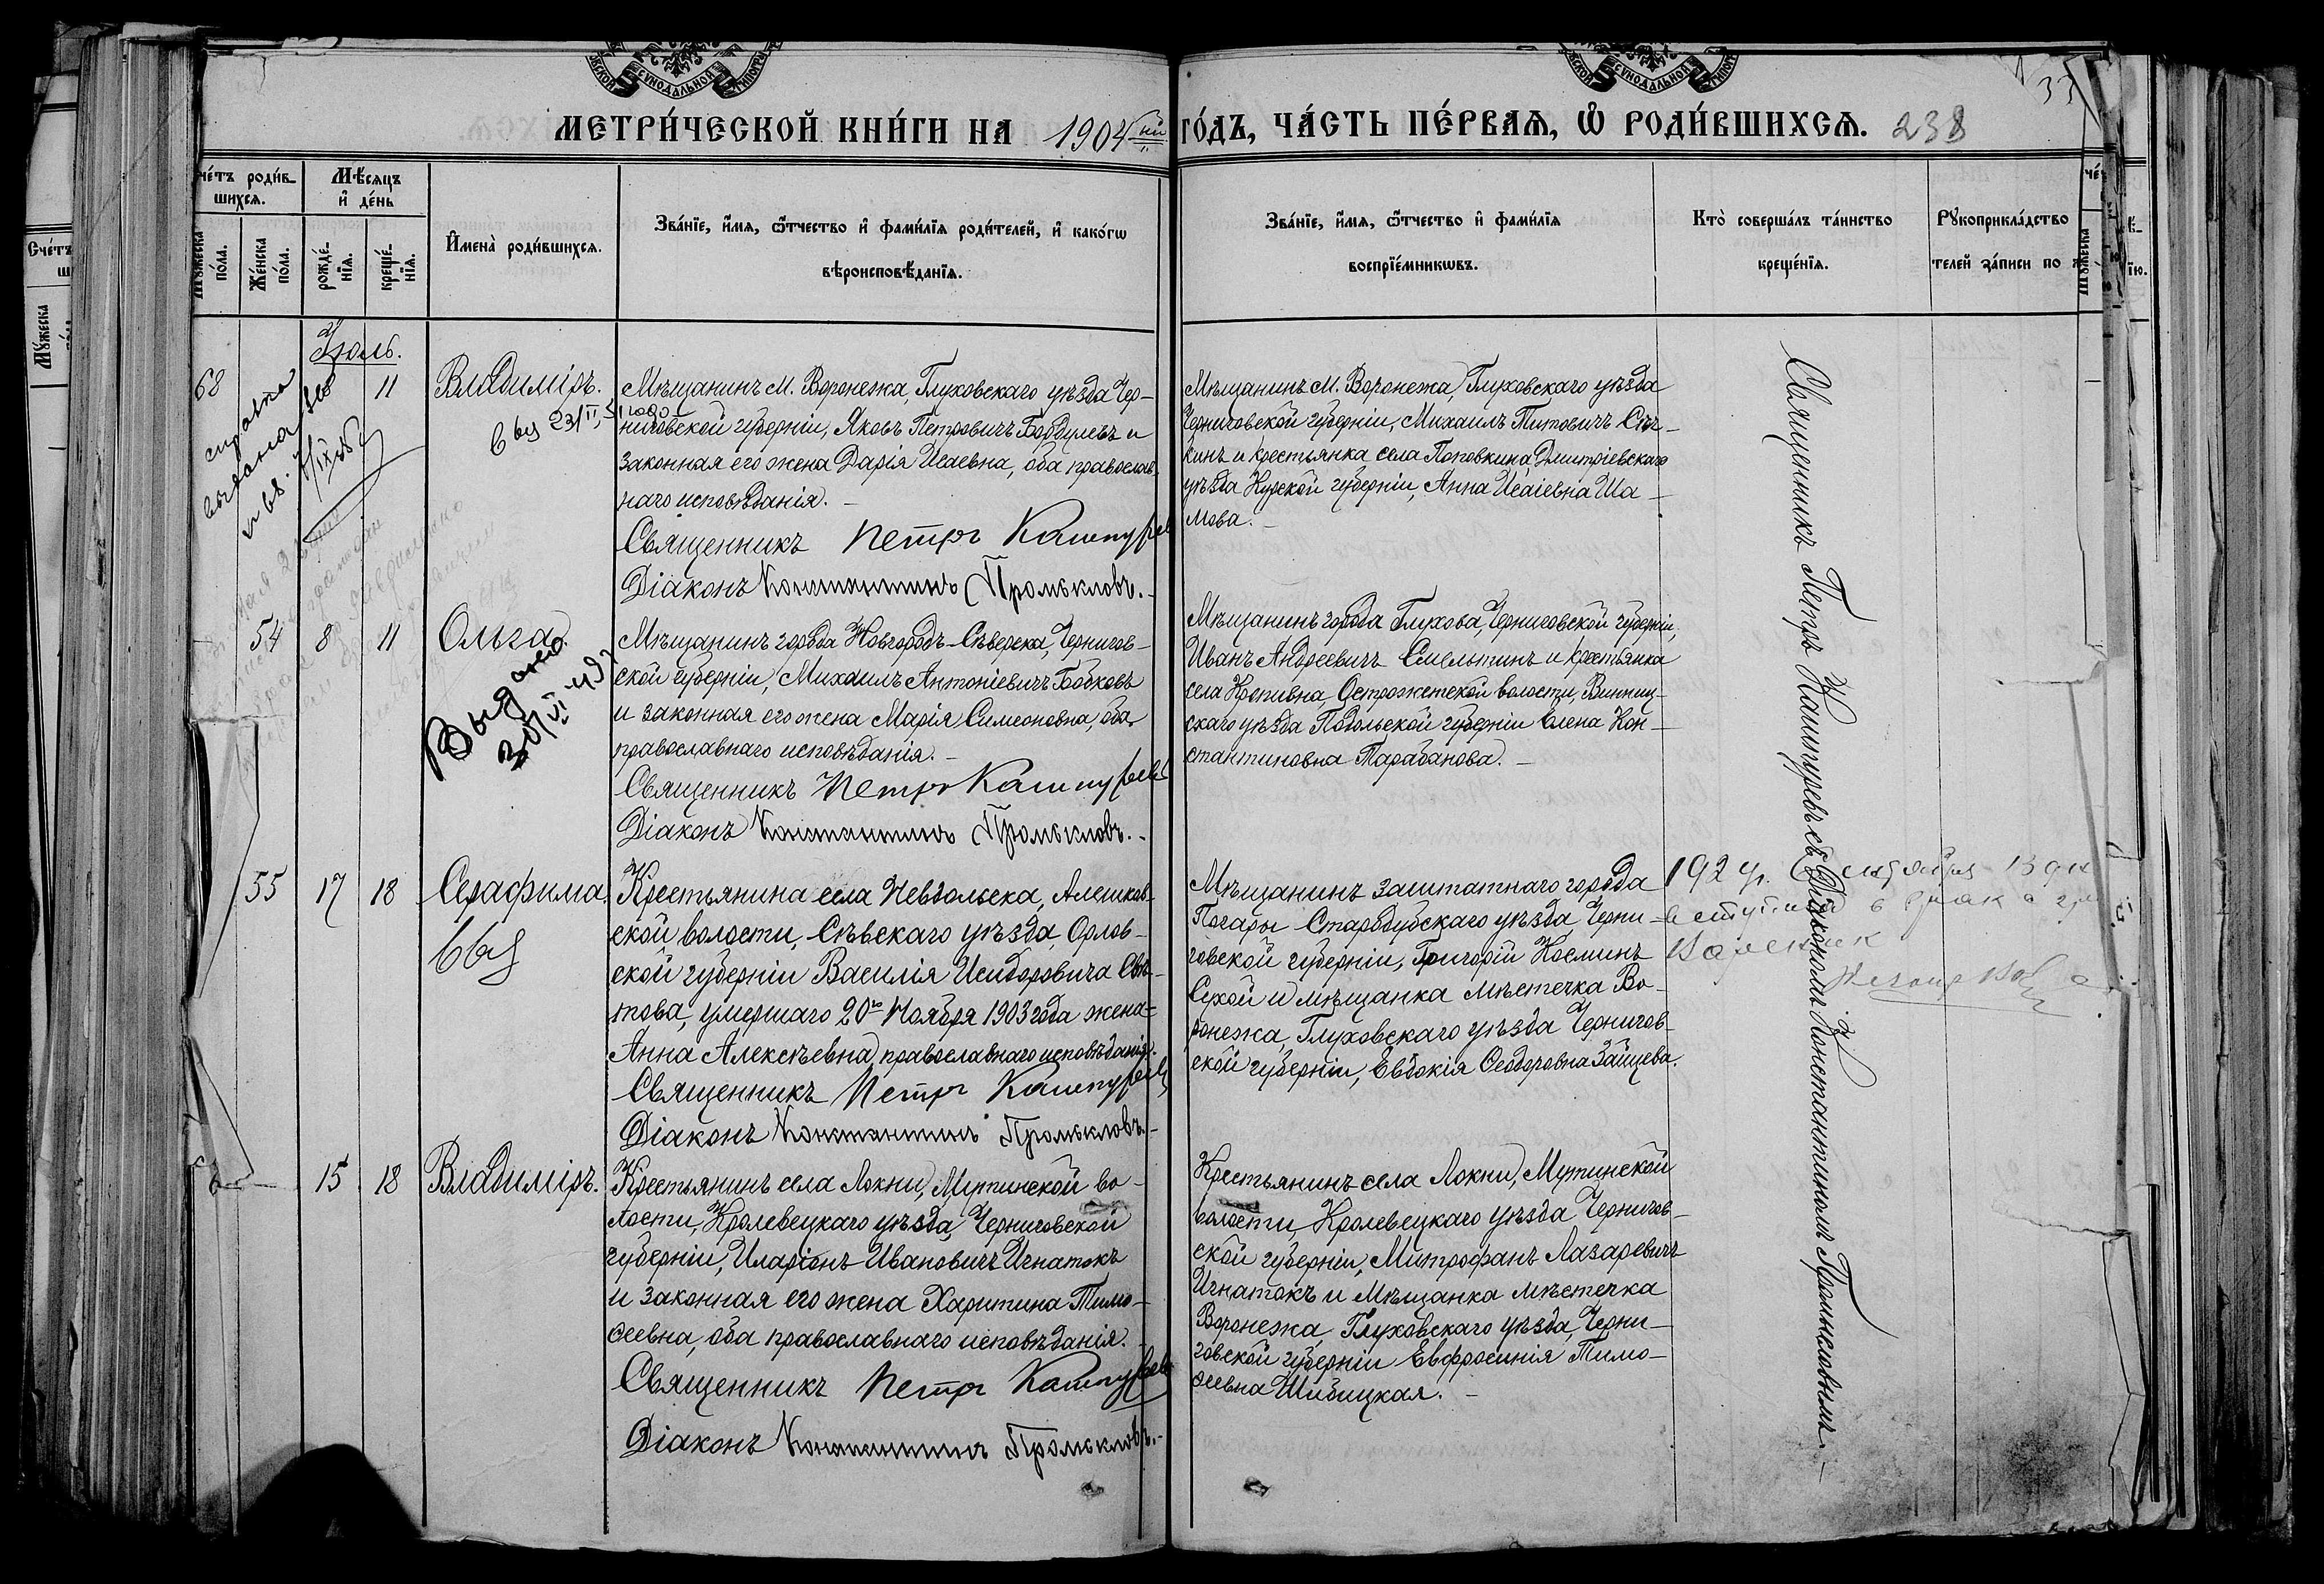 МЕТРИ́ЧЕСКОЙ КНИ́ГИ НА 1904 ый
ГО́ДЪ, ЧА́СТЬ ПЕ́РВАЯ, Ѡ РОДИ́ВШИХСЯ. 238
33
СѴНОДАЛЬНОЙ
СѴНОДАЛЬНОЙ
че́тъ роди́в-
шихся.
Мѣ́сяцъ
и҆ де́нь
Му́жеска
по́ла.
Же́нска
по́ла.
рожде́-
нїя.
креще́-
нїя.
И҆мена̀ роди́вшихся.
Зва́нїе, и҆́мя, ѻ҆́тчество и҆ фами́лїя роди́телей, и҆ како́гѡ
вѣроисповѣ́данїя.
Зва́нїе, и҆́мя, ѻ҆́тчество и҆ фами́лїя
воспрїе́мникѡвъ.
Кто̀ соверша́лъ та́инство
креще́нїя.
Рꙋкоприкла́дство
телей за́писи по
Счéтъ
Мꙋ́жеска
Іюль.
68
11
Владиміръ.
справка
выдана
№ 68.
Мѣщанинъ м. Воронежа, Глуховскаго уѣзда Чер-
ниговской губерніи, Яковъ Петровичъ Бобылевъ и
законная его жена Дарія Исаевна, оба православ-
наго исповѣданія. -
Священникъ Петръ Кашпуревъ
Діаконъ Константинъ Промысловъ. -
Мѣщанинъ м. Воронежа, Глуховскаго уѣзда
Черниговской губерніи, Михаилъ Титовичъ Сѣч-
кинъ и крестьянка села Поповкина, Дмитріевскаго
уѣзда Курской губерніи, Анна Исаіевна Ша-
мова. -
54 8 11 Ольга.
Выдано
30/VI 49
Мѣщанинъ города Новгородъ-Сѣверска, Чернигов-
ской губерніи, Михаилъ Антоніевичъ Бобковъ
и законная его жена Марія Симеоновна, оба
православнаго исповѣданія. -
Священникъ Петръ Кашпуревъ
Діаконъ Константинъ Промысловъ. -
Мѣщанинъ города Глухова, Черниговской губерніи,
Иванъ Андреевичъ Смельтинъ и крестьянка
села Кропивна, Острожетской волости, Винниц-
скаго уѣзда Подольской губерніи Елена Кон-
стантиновна Тарабанова. -
55 17 18 Серафима.
Крестьянина села Невдольска, Алешков-
ской волости, Сѣвскаго уѣзда, Орлов-
ской губерніи Василія Исидоровича Свѣ-
това, умершаго 20го Ноября 1903 года жена
Анна Алексѣевна, православнаго исповѣданія.
Священникъ Петръ Кашпуревъ
Діаконъ Константинъ Промысловъ. -
Мѣщанинъ заштатнаго города
Погары Стародубскаго уѣзда, Черни-
говской губерніи, Григорій Косминъ
Сухой и мѣщанка мѣстечка Во-
ронежа, Глуховскаго уѣзда Чернигов-
ской губерніи, Евдокія Ѳеодоровна Зайцева.
15 18 Владиміръ.
Крестьянинъ села Локни, Мутинской во-
лости, Кролевецкаго уѣзда, Черниговской
губерніи, Иларіонъ Ивановичъ Игнатокъ
и законная его жена Харитина Тимо-
ѳеевна, оба православнаго исповѣданія. -
Священникъ Петръ Кашпуревъ
Діаконъ Константинъ Промысловъ. -
Крестьянинъ села Локни, Мутинской
волости, Кролевецкаго уѣзда Чернигов-
ской губерніи, Митрофанъ Лазаревичъ
Игнатокъ и Мѣщанка мѣстечка
Воронежа, Глуховскаго уѣзда, Черни-
говской губерніи Евфросинія Тимо-
ѳеевна Шибицкая. -
Священникъ Петръ Кашпуревъ съ Діакономъ Константиномъ Промысловымъ. -